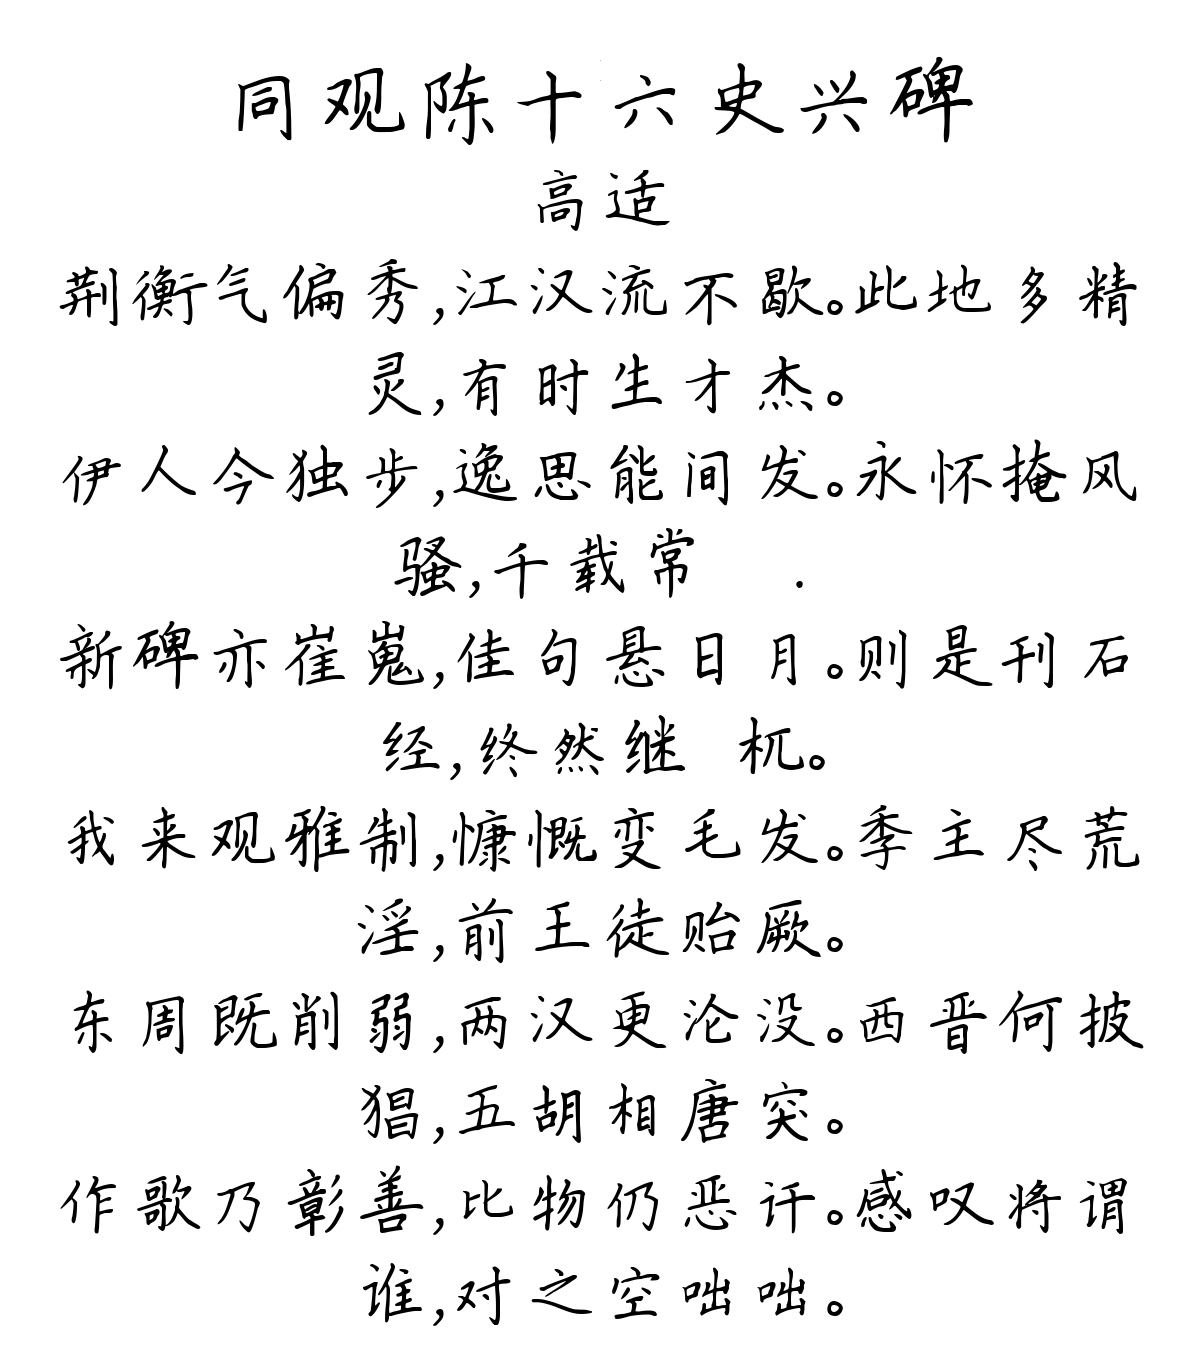 同观陈十六史兴碑
高适
荆衡气偏秀,江汉流不歇。此地多精
灵,有时生才杰。
伊人今独步,逸思能间发。永怀掩风
骚,千载常 .
新碑亦崔嵬,佳句悬日月。则是刊石
经,终然继 杌。
我来观雅制,慷慨变毛发。季主尽荒
淫,前王徒贻厥。
东周既削弱,两汉更沦没。西晋何披
猖,五胡相唐突。
作歌乃彰善,比物仍恶讦。感叹将谓
谁,对之空咄咄。